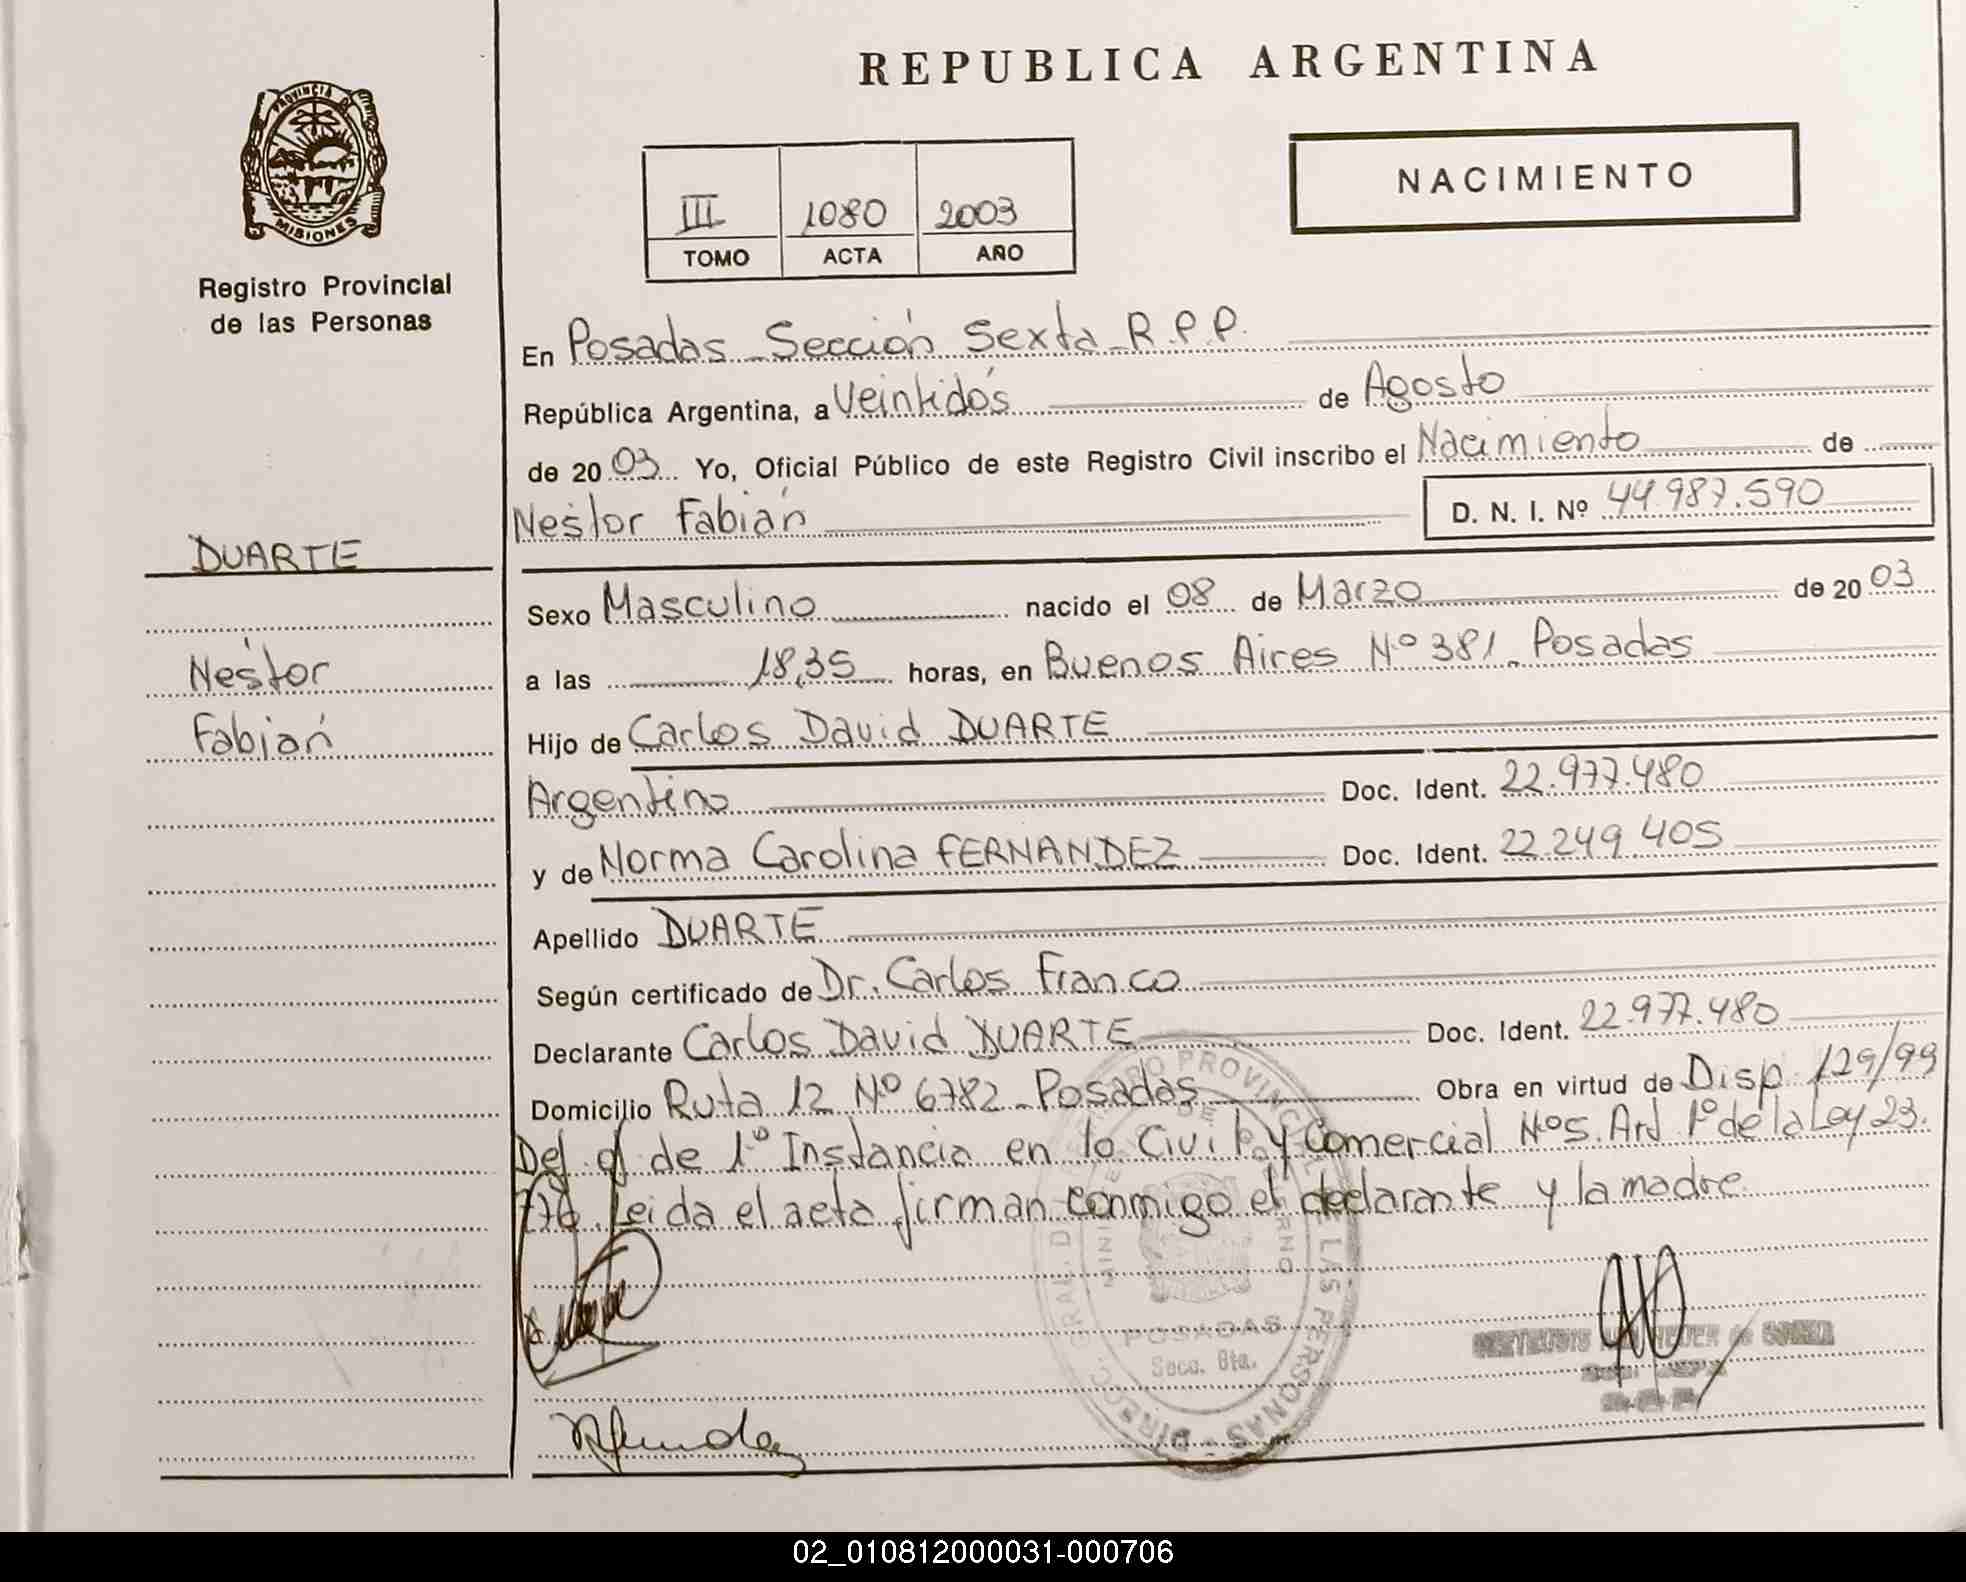 REPUBLICA ARGENTINA
PROVINCIA DE
MISIONES
Registro Provincial
de las Personas
NACIMIENTO
III 1080 2003
TOMO ACTA AÑO
En Posadas Sección Sexta R.P.P.
República Argentina, a Veintidós de Agosto
de 20 03 Yo, Oficial Público de este Registro Civil inscribo el Nacimiento de
Nestor Fabián D. N. I. Nº 44.987.590
DUARTE
Nestor
Fabián
Sexo Masculino nacido el 08 de Marzo de 20 03
a las 18,35 horas, en Buenos Aires Nº 381 Posadas
Hijo de Carlos David DUARTE
Argentino Doc. Ident. 22.977.480
y de Norma Carolina FERNANDEZ Doc. Ident. 22.249.405
Apellido DUARTE
Según certificado de Dr. Carlos Franco
Declarante Carlos David DUARTE Doc. Ident. 22.977.480
Domicilio Ruta 12 Nº 6782 Posadas Obra en virtud de Disp. 129/99
de 1º Instancia en lo Civil y Comercial Nº 5. Art 1º de la Ley 23.
776. Leida el acta firman conmigo el declarante y la madre
POSADAS
Secc. 6ta.
02_010812000031-000706